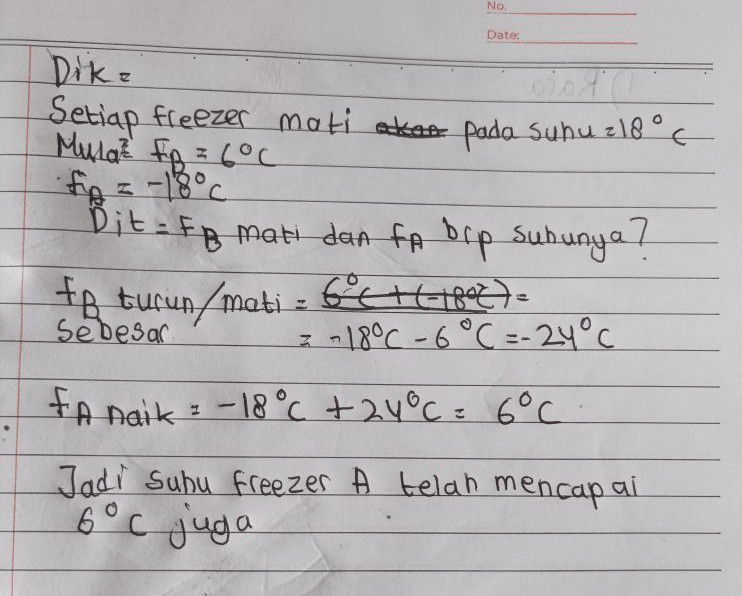 No.
Date:
Dik =
Setiap freezer mati akan pada suhu = 18°C
Mula² FB = 6°C
FA = -18°C
Dit = FB mati dan FA brp suhunya?
FB turun/mati = 6°C + (-18°C) =
Sebesar = -18°C - 6°C = -24°C
FA naik = -18°C + 24°C = 6°C
Jadi suhu freezer A telah mencapai
6°C juga